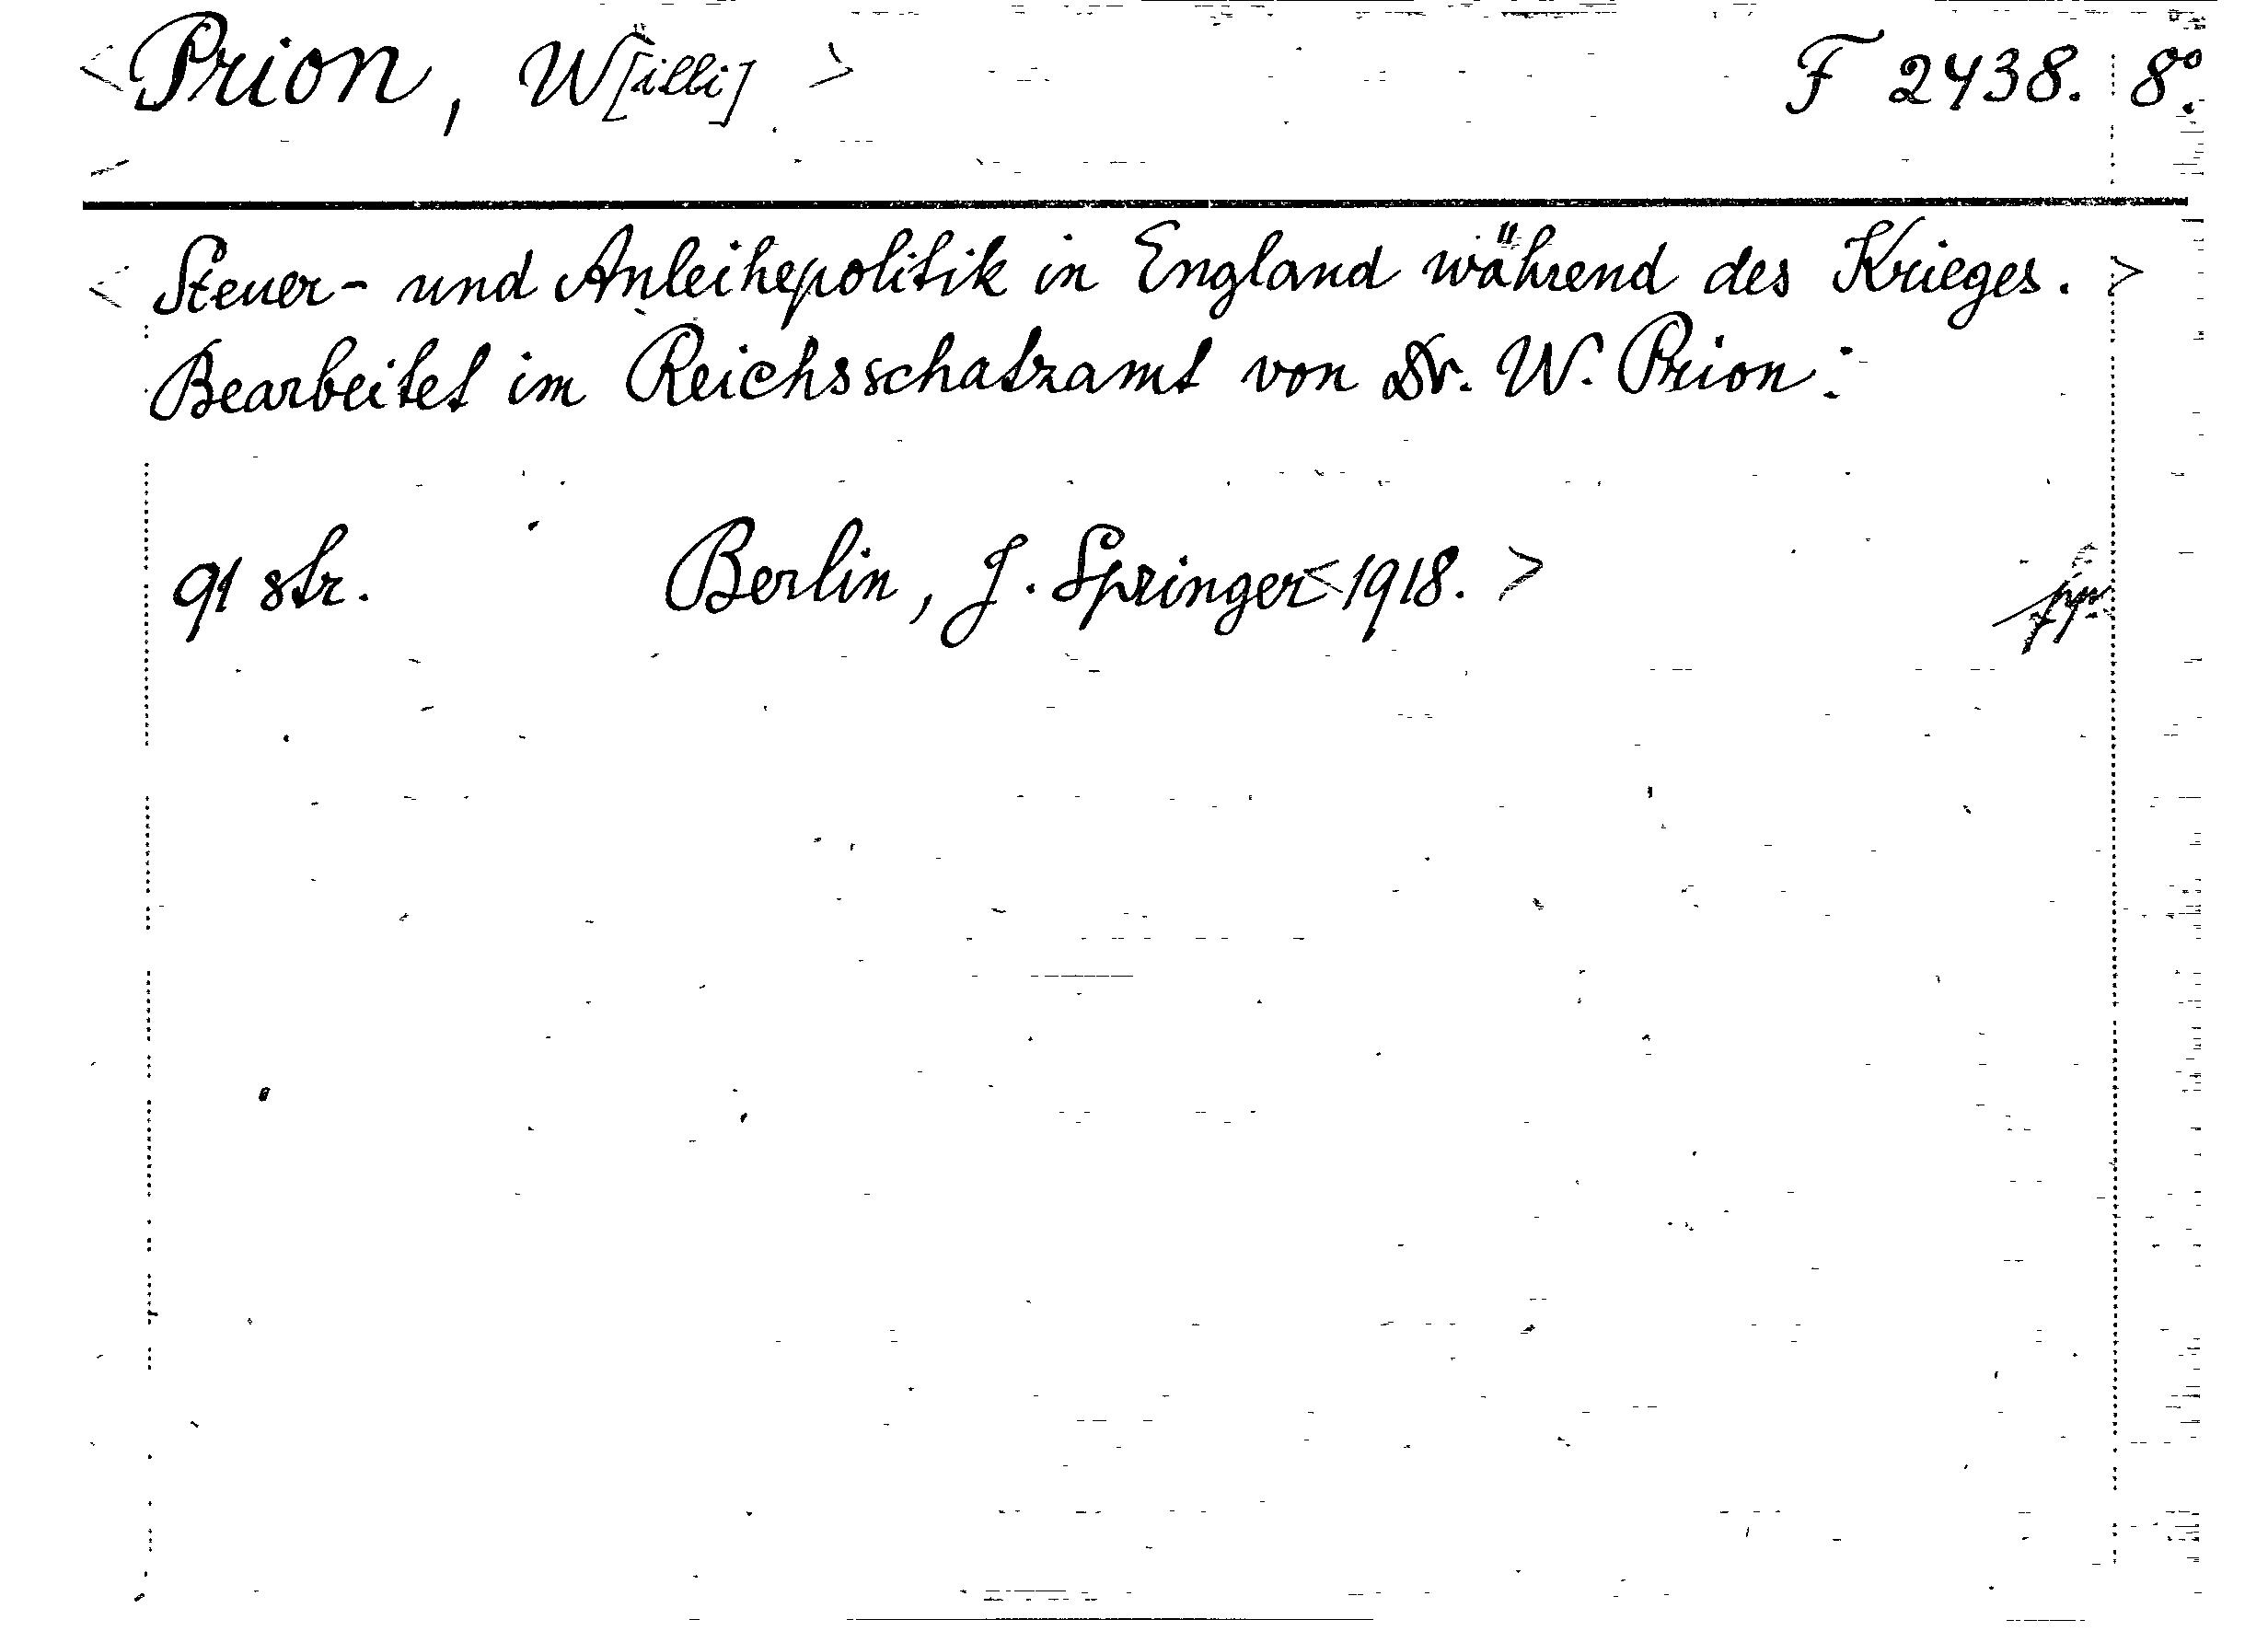 <Prion, W[illi]> F 2438. 8°.
<Steuer- und Anleihepolitik in England während des Krieges.>
Bearbeitet im Reichsschatzamt von Dr. W. Prion:
91 str. Berlin, J. Springer <1918.>